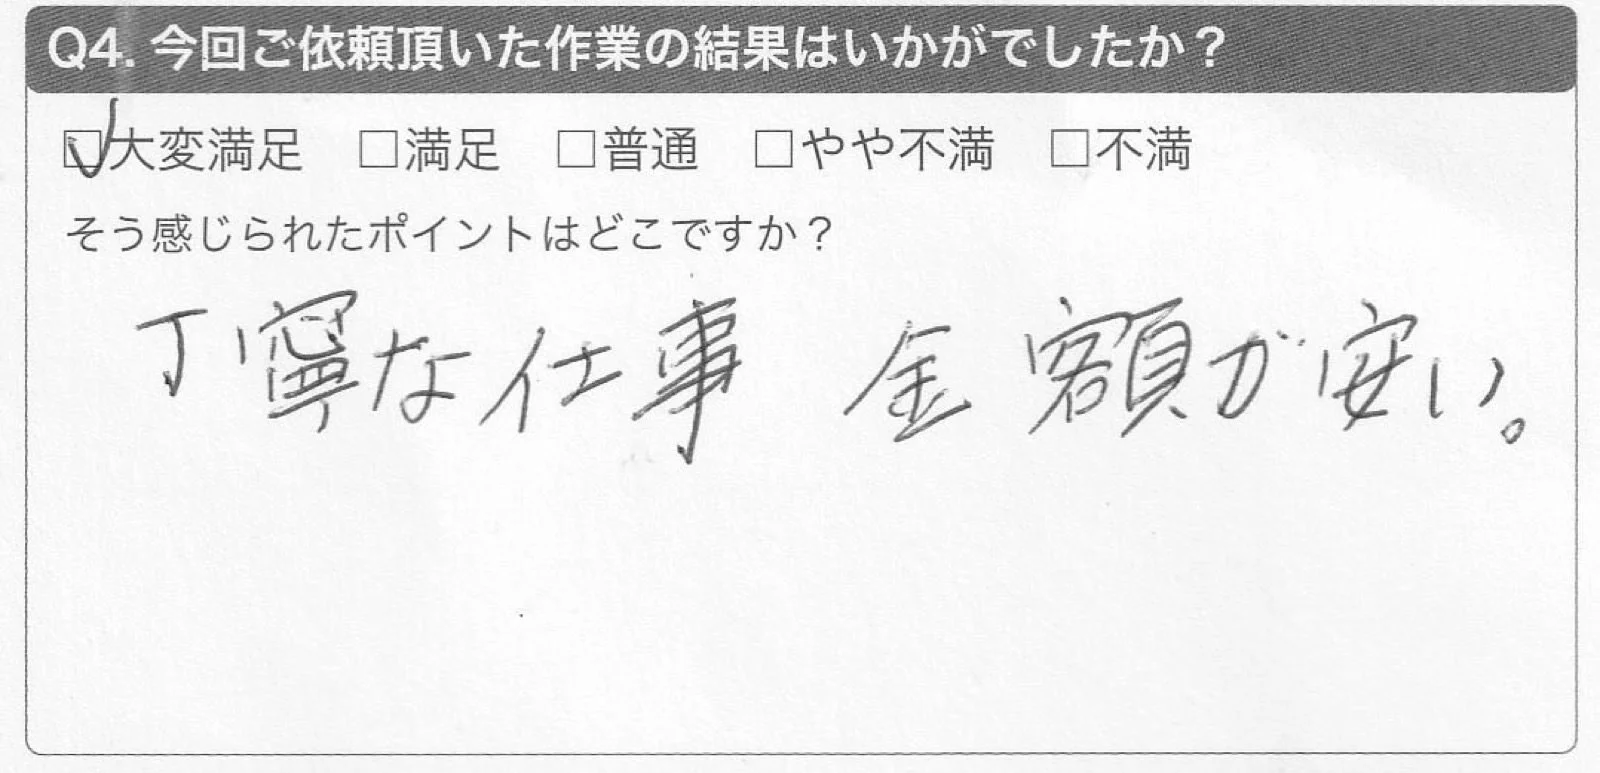 Q4. 今回ご依頼頂いた作業の結果はいかがでしたか？
☑大変満足 □満足 □普通 □やや不満 □不満
そう感じられたポイントはどこですか？
丁寧な仕事 金額が安い。